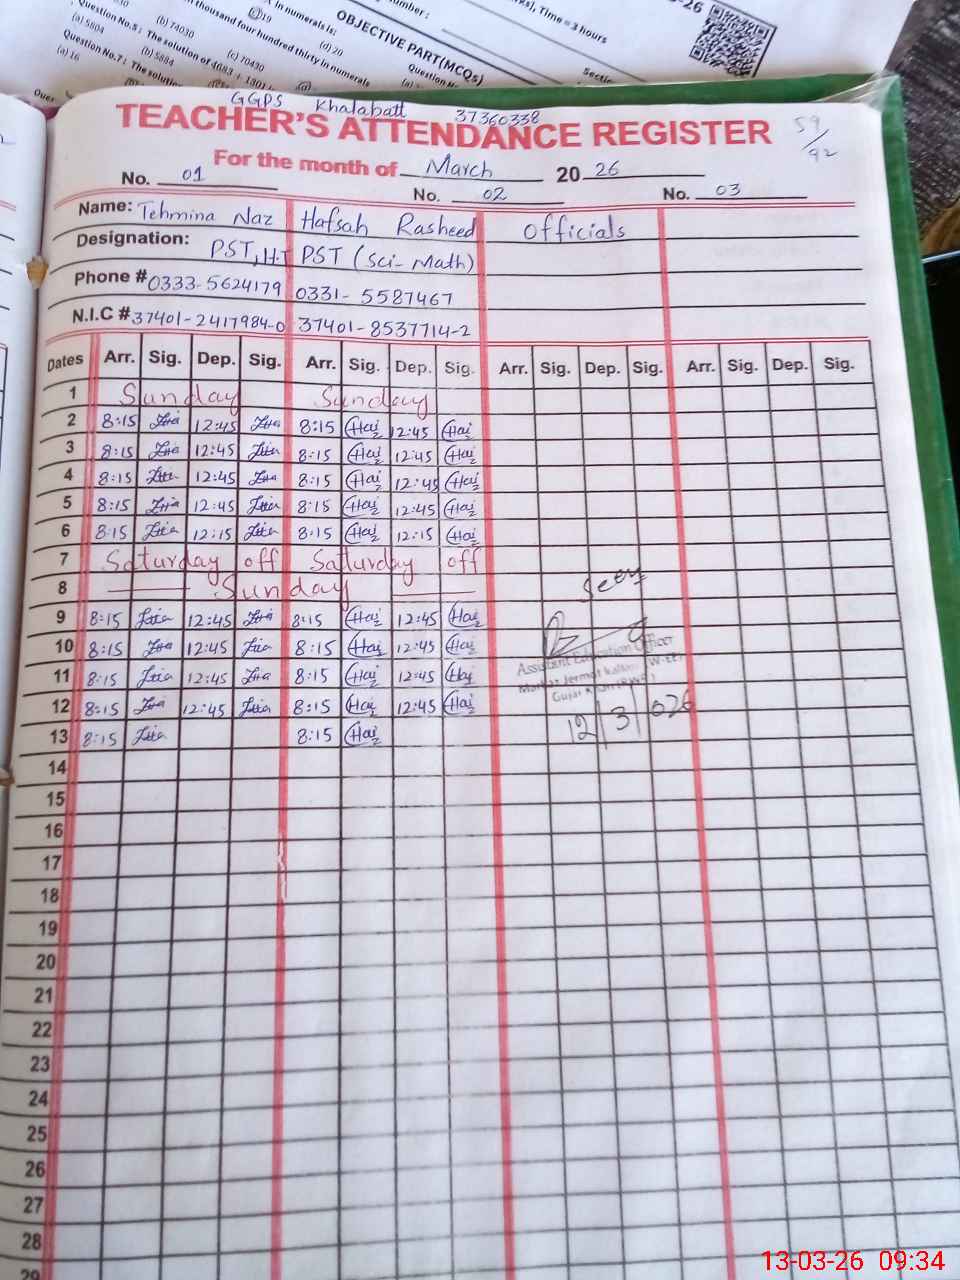 Question No.5: The solution of 4683 + 1301
thousand four hundred thirty in numerals
in numerals is:
(a) 5804 (b) 5884 (c) 70430
(b) 74030
(d) 20
Question No.7: The solution
(a) 16
OBJECTIVE PART(MCQs)
Time = 3 hours
GGPS Khalabatt 37360338
TEACHER'S ATTENDANCE REGISTER
59/92
For the month of March 20 26
No. 01 No. 02 No. 03
Name: Tehmina Naz Hafsah Rasheed Officials
Designation: PST, H.T PST (Sci-Math)
Phone # 0333-5624179 0331-5587467
N.I.C # 37401-2417984-0 37401-8537714-2
Dates Arr. Sig. Dep. Sig. Arr. Sig. Dep. Sig. Arr. Sig. Dep. Sig. Arr. Sig. Dep. Sig.
1 Sunday Sunday
2 8:15 12:45 8:15 12:45
3 8:15 12:45 8:15 12:45
4 8:15 12:45 8:15 12:45
5 8:15 12:45 8:15 12:45
6 8:15 12:15 8:15 12:15
7 Saturday off Saturday off
8 Sunday
9 8:15 12:45 8:15 12:45
10 8:15 12:45 8:15 12:45
11 8:15 12:45 8:15 12:45
12 8:15 12:45 8:15 12:45
13 8:15 8:15
Seen
Assistant Education Officer
12/3/026
14
15
16
17
18
19
20
21
22
23
24
25
26
27
28
29
13-03-26 09:34